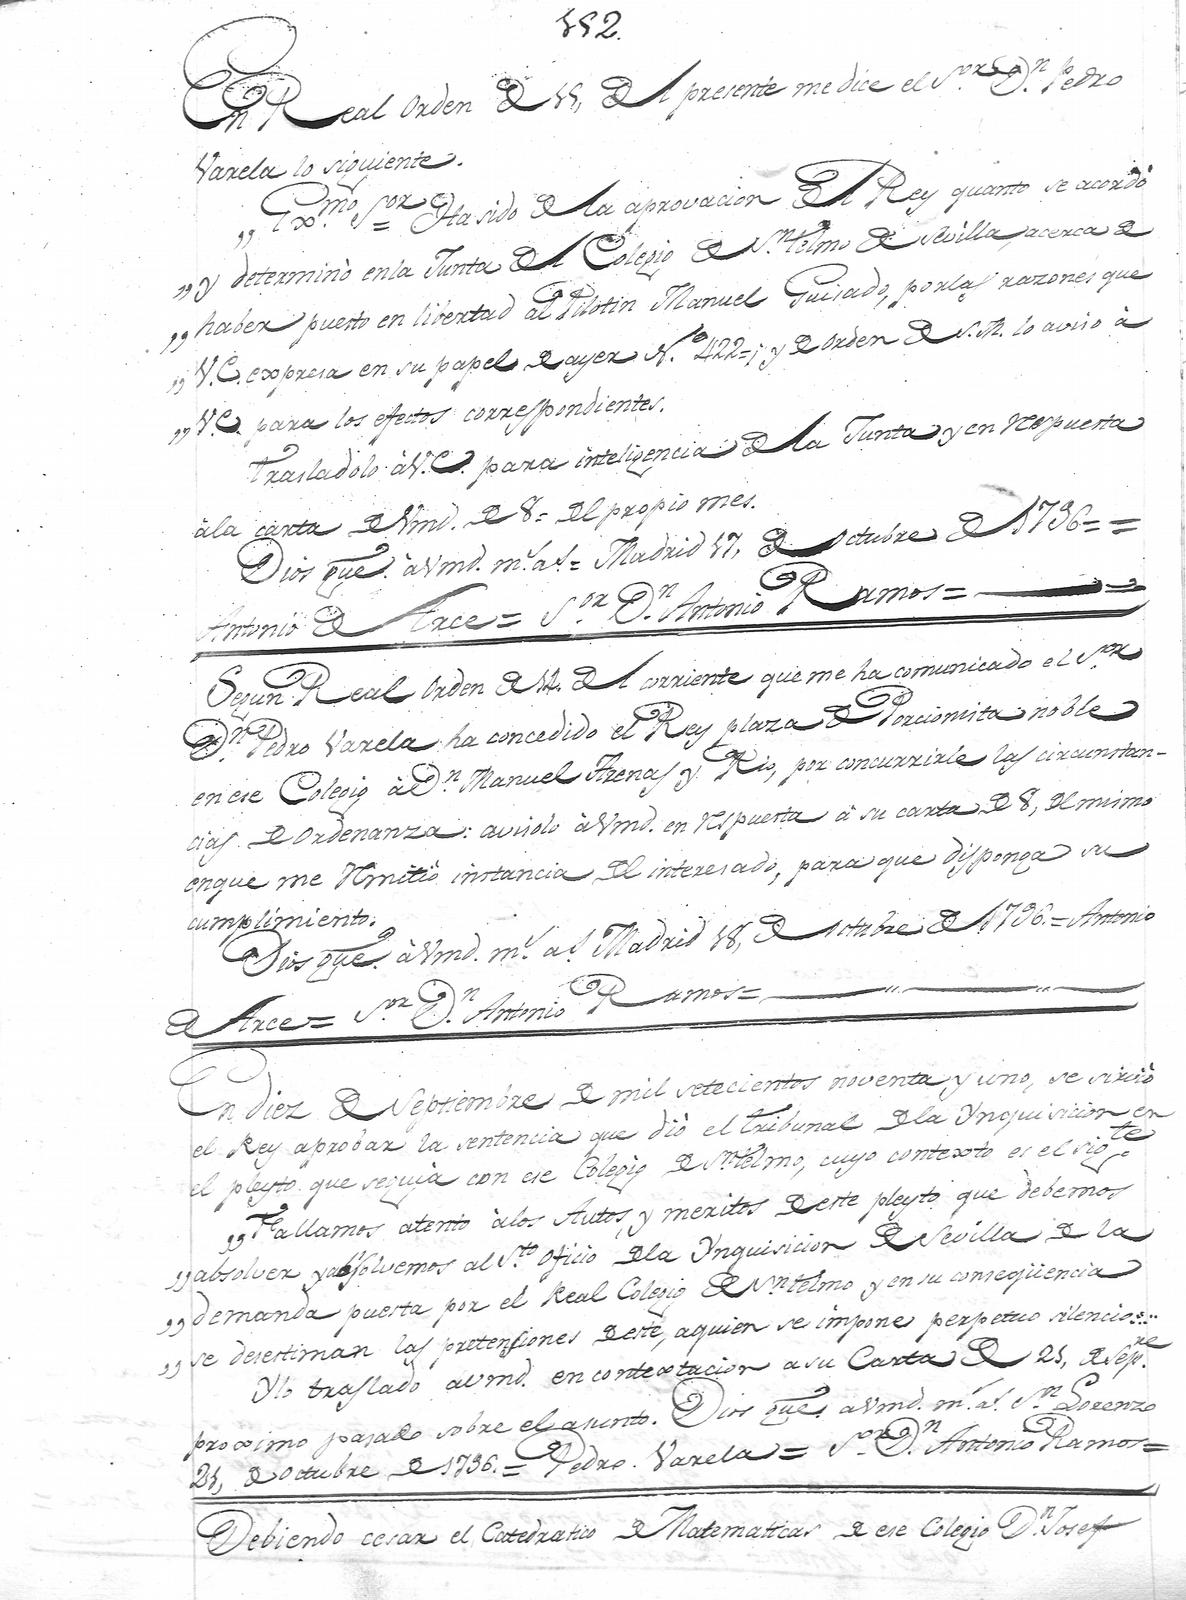 552.
En Real Orden de 15, del presente me dice el S.or D.n Pedro
Varela lo siguiente.
„ Exmô. S.or = Ha sido de la aprovacion del Rey quanto se acordò
„ y determinò en la Junta del Colegio de S.n Telmo de Sevilla, acerca de
„ haber puesto en libertad al Pilotin Manuel Guisado, por las razones que
„ V.E. expresa en su papel de ayer N.º 422=; y de orden de S.M. lo aviso à
„ V.E. para los efectos correspondientes.
Trasladolo à V.E. para inteligencia de la Junta y en respuesta
à la carta de Vmd. de 8= del propio mes.
Dios gue. à Vmd. m.s a.s = Madrid 17, de Octubre de 1796= =
Antonio de Arce = S.or D.n Antonio Ramos =
Segun Real Orden de 14. del corriente que me ha comunicado el S.or
D.n Pedro Varela ha concedido el Rey plaza de Porcionista noble
en ese Colegio à D.n Manuel Arenas y Rio, por concurrirle las circunstan-
cias de Ordenanza: avisolo à Vmd. en respuesta à su carta de 8, del mismo
en que me remitiò instancia del interesado, para que disponga su
cumplimiento.
Dios gue. à Vmd. m.s a.s Madrid 18, de Octubre de 1796. = Antonio
de Arce = S.or D.n Antonio Ramos = „ „
En diez de Septiembre de mil setecientos noventa y uno, se sirviò
el Rey aprobar la sentencia que diò el Tribunal de la Ynquisicion en
el pleyto que seguia con ese Colegio de S.n Telmo, cuyo contexto es el sig.te
„ Fallamos atento à los Autos, y meritos de este pleyto que debemos
„ absolver y absolvemos al S.to Oficio de la Ynquisicion de Sevilla de la
„ demanda puesta por el Real Colegio de S.n Telmo y en su conseqüencia
„ se desestiman las pretensiones de este, a quien se impone perpetuo silencio
Y lo traslado a Vmd. en contextacion a su Carta de 25, de Sep.re
proximo pasado sobre el asunto. Dios gue. a Vmd. m.s a.s S.n Lorenzo
25, de Octubre de 1796. = Pedro Varela = S.or D.n Antonio Ramos =
Debiendo cesar el Catedratico de Matematicas de ese Colegio D.n Josef